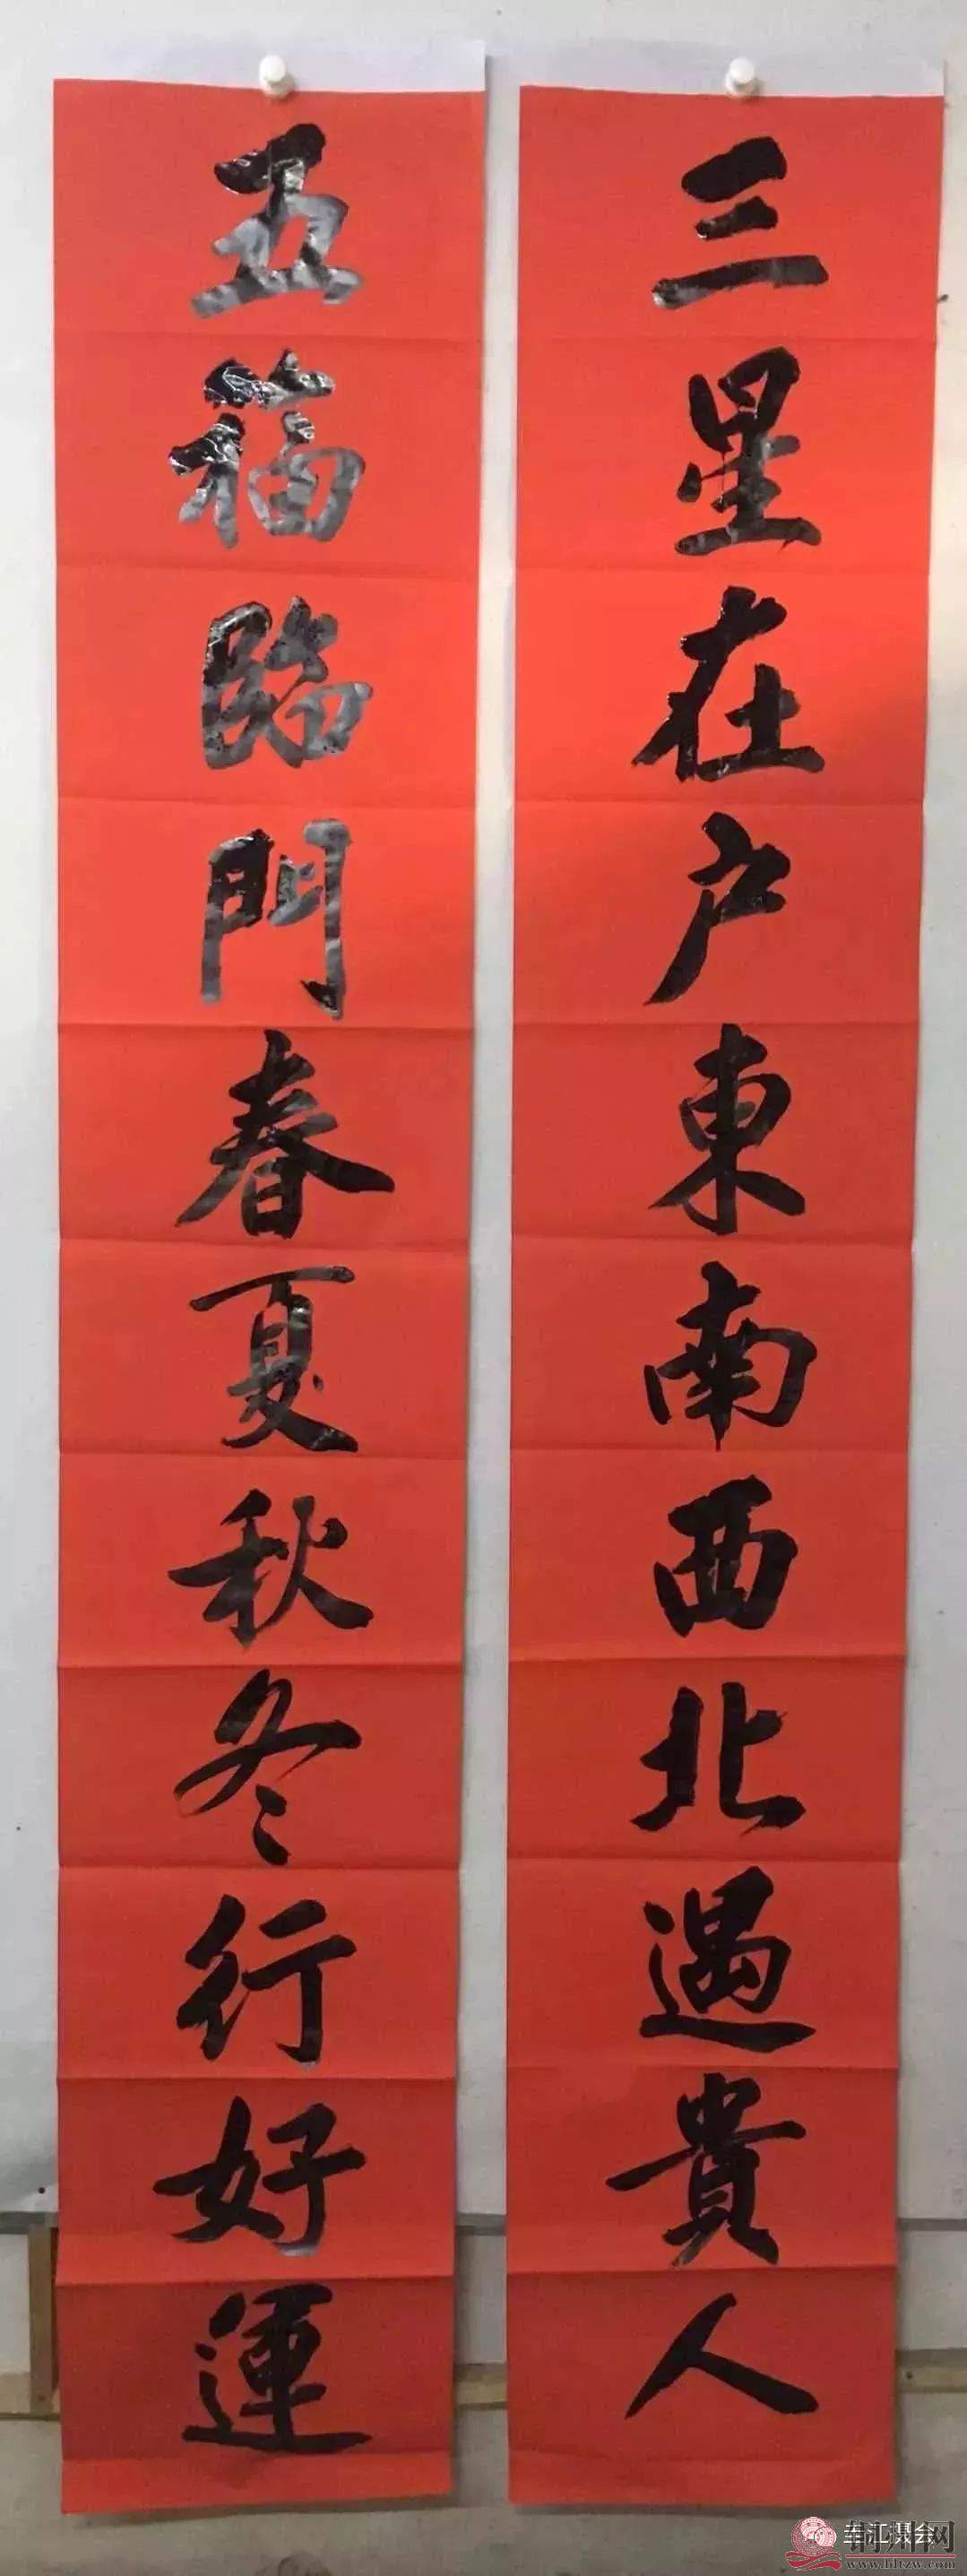 三星在户東南西北遇貴人
五福臨門春夏秋冬行好運
www.bltzw.com